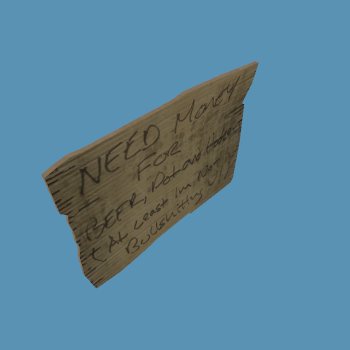 NEED MONEY
FOR
BEER, Pot and Hooker
( At Least Im Not
Bullshitting U